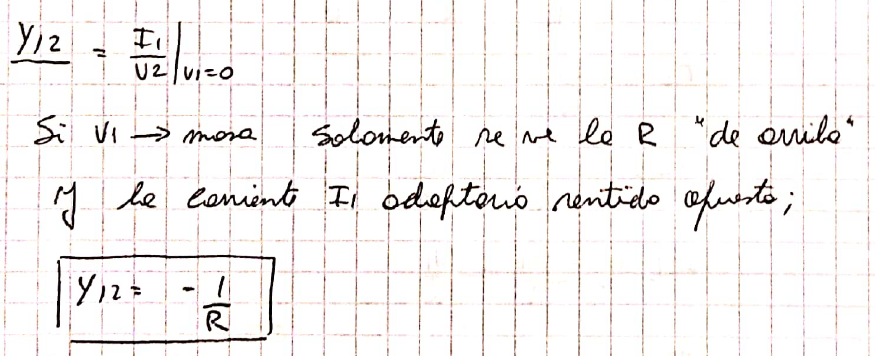 Y12 = I1/V2 | V1=0
Si V1 → masa solamente se ve la R "de arriba"
y la corriente I1 adoptaría sentido opuesto;
Y12 = - 1/R